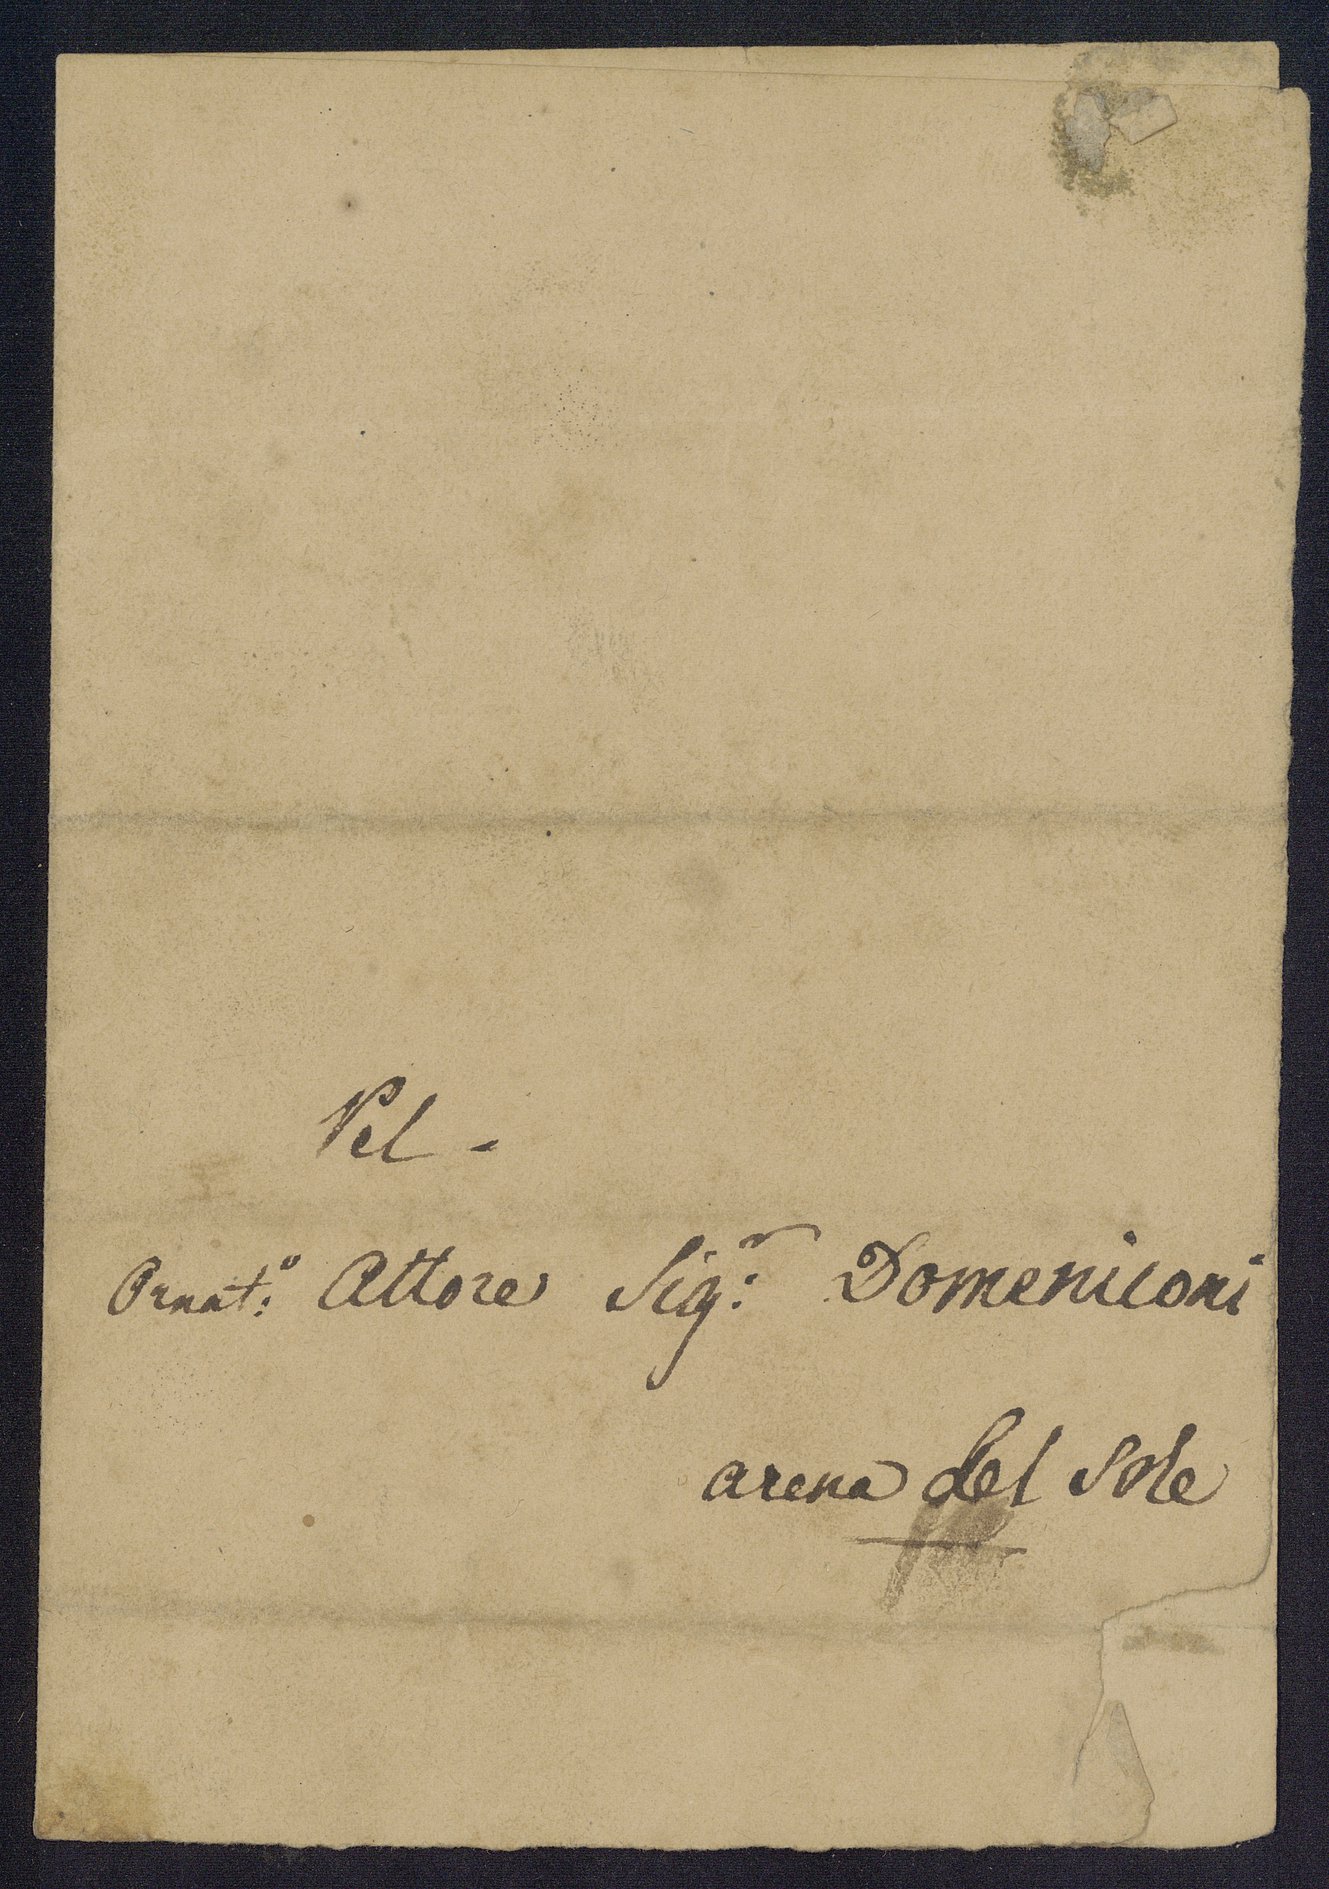 Pel -
Ornat:º Attore Sig:r Domeniconi
arena del Sole